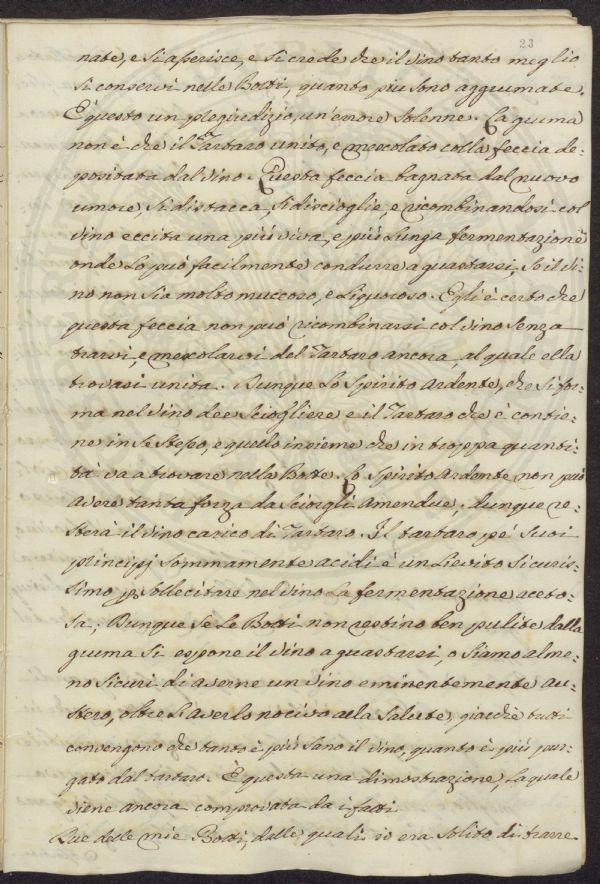 23
nate, e si asserisce, e si crede che il vino tanto meglio
si conservi nelle Botti, quanto piu sono aggiumate.
È questo un plegiudizio, un'errore solenne. La giuma
non è che il Tartaro unito, e mescolato colla feccia de-
positata dal vino. Questa feccia bagnata dal nuovo
umore, si distacca, si discioglie, e ricombinandosi col
vino eccita una più viva, e più lunga fermentazione
onde lo può facilmente condurre a guastarsi, se il vi-
no non sia molto muccoso, e liquoroso. Egli è certo che
questa feccia non può ricombinarsi col vino senza
trarvi, e mescolarvi del Tartaro ancora, al quale ella
trovasi unita. Dunque lo spirito ardente, che si for-
ma nel vino dee sciogliere e il Tartaro che è contie-
ne in se stesso, e quello insieme che in troppa quanti-
tà va a trovare nella Botte. Lo spirito ardente non può
avere tanta forza da sciorgli amendue, dunque re-
sterà il vino carico di Tartaro. Il tartaro pe' suoi
principj sommamente acidi è un lievito sicuris-
simo p sollecitare nel vino la fermentazione aceto-
sa; Dunque se le Botti non restino ben pulite dalla
giuma si espone il vino a guastarsi, o siamo alme-
no sicuri di averne un vino eminentemente au-
stero, oltre l'averlo nocivo alla salute, giacchè tutti
convengono che tanto è più sano il vino, quanto è più pur-
gato dal tartaro. È questa una dimostrazione, la quale
viene ancora comprovata da i fatti
Due delle mie Botti, dalle quali io era solito di trarre